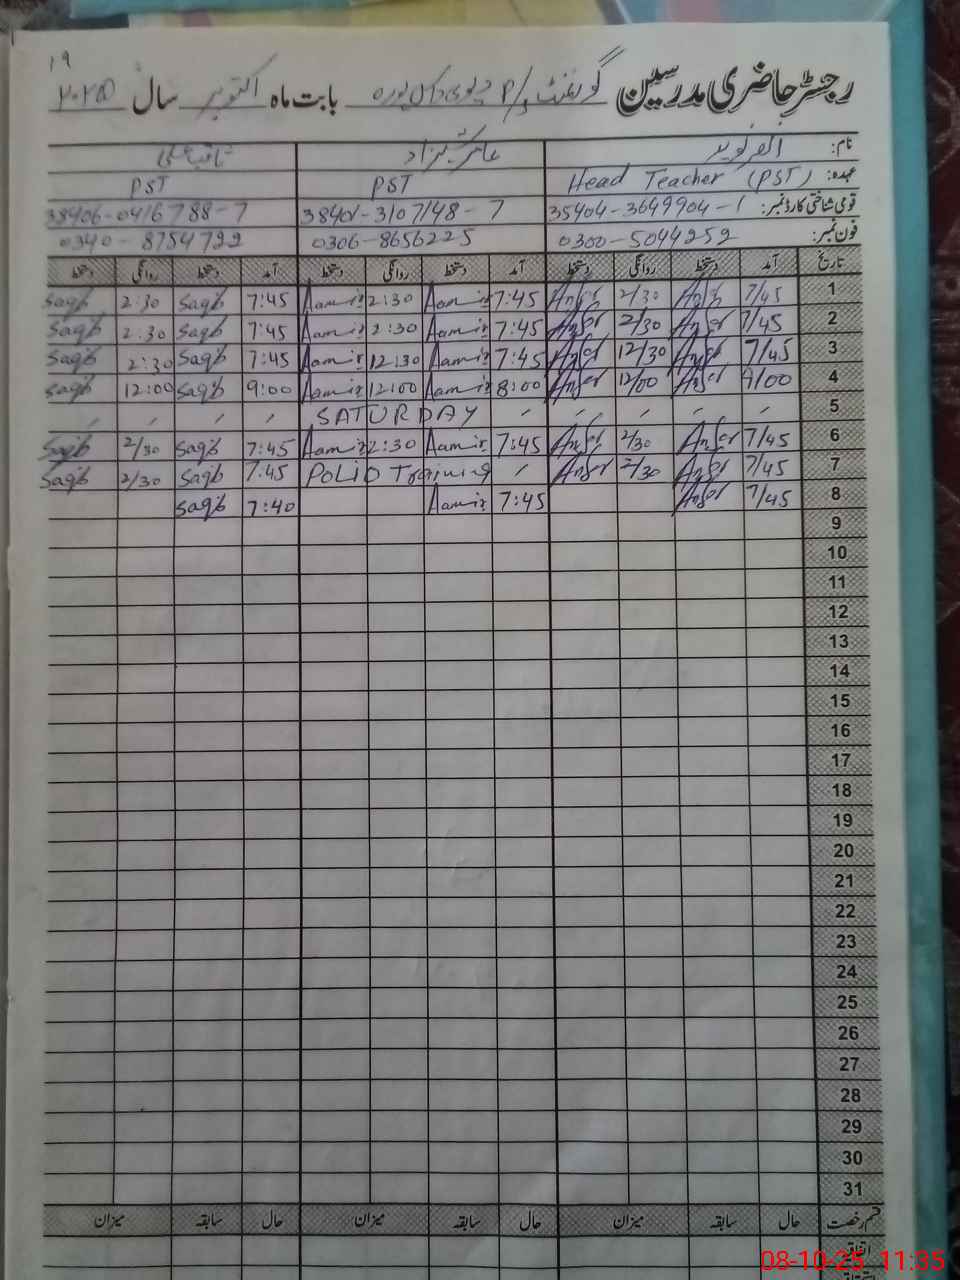 ۱۹
رجسٹر حاضری مدرسین گورنمنٹ P/S بابت ماہ اکتوبر سال ۲۰۲۵
نام: عامر شہزاد ثاقب علی
عہدہ: Head Teacher (PST) PST PST
قومی شناختی کارڈ نمبر: 35404-3649904-1 38401-3107148-7 38406-0416788-7
فون نمبر: 0300-5044252 0306-8656225 0340-8754722
تاریخ آمد دستخط روانگی دستخط آمد دستخط روانگی دستخط آمد دستخط روانگی دستخط
1 7/45 Anser 2/30 Anser 7:45 Aamir 2:30 Aamir 7:45 Saqib 2:30 Saqib
2 7/45 Anser 2/30 Anser 7:45 Aamir 2:30 Aamir 7:45 Saqib 2:30 Saqib
3 7/45 Anser 12/30 Anser 7:45 Aamir 12:30 Aamir 7:45 Saqib 2:30 Saqib
4 Anser 12/00 Anser 8:00 Aamir 12:00 Aamir 9:00 Saqib 12:00 Saqib
5 SATURDAY
6 7/45 Anser 2/30 Anser 7:45 Aamir 2:30 Aamir 7:45 Saqib 2/30 Saqib
7 7/45 Anser 2/30 Anser POLIO Training 7:45 Saqib 2/30 Saqib
8 7/45 Anser 7:45 Aamir 7:40 Saqib
9
10
11
12
13
14
15
16
17
18
19
20
21
22
23
24
25
26
27
28
29
30
31
قسم رخصت حال سابقہ میزان حال سابقہ میزان حال سابقہ میزان
اتفاقیہ
08-10-25 11:35